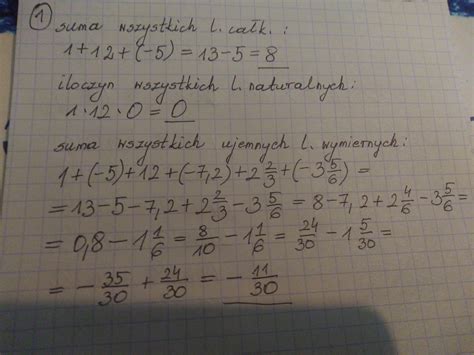 1 suma wszystkich l. całk.:
1+12+(-5) = 13-5 = 8
iloczyn wszystkich l. naturalnych:
1·12·0 = 0
suma wszystkich ujemnych l. wymiernych:
1+(-5)+12+(-7,2)+2 2/3+(-3 5/6) =
= 13-5-7,2+2 2/3-3 5/6 = 8-7,2+2 4/6-3 5/6 =
= 0,8-1 1/6 = 8/10-1 1/6 = 24/30-1 5/30 =
= -35/30+24/30 = -11/30